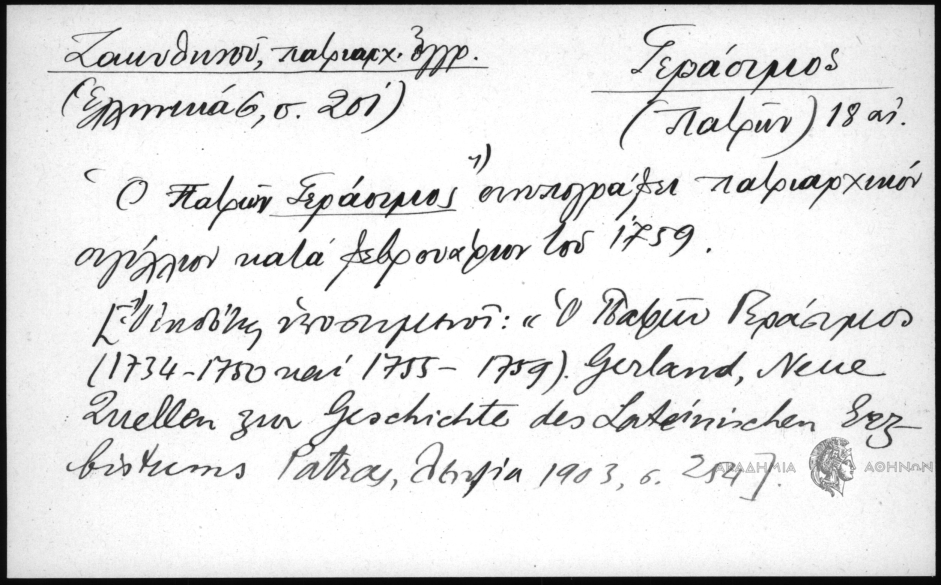 Ζακυθηνοῦ, πατριαρχ. ἔγγρ.
(Ἑλληνικά 6, σ. 201)
Γεράσιμος
(Πατρῶν) 18 αἰ.
Ὁ Πατρῶν Γεράσιμος 1) συνυπογράφει πατριαρχικόν
σιγίλλιον κατά φεβρουάριον τοῦ 1759.
[1) Ὁ ἐκδότης ὑποσημειοῖ: « Ὁ Πατρῶν Γεράσιμος
(1734-1750 καί 1755-1759). Gerland, Neue
Quellen zur Geschichte des Lateinischen Erz
bistums Patras, Λειψία 1903, σ. 254].
ΑΚΑΔΗΜΙΑ ΑΘΗΝΩΝ